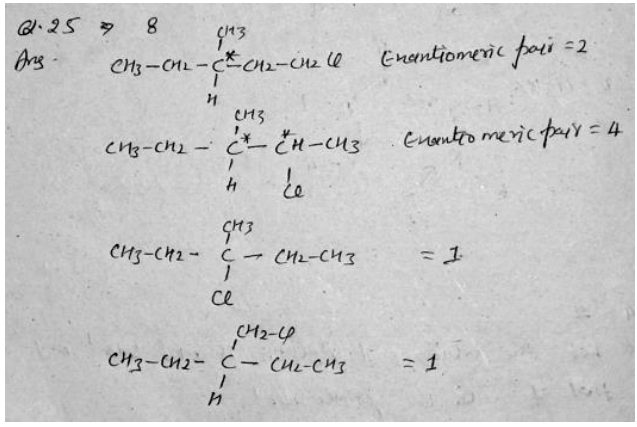 Q.25 ⇒ 8
Ans.
CH3
CH3-CH2-C*-CH2-CH2Cl Enantiomeric pair = 2
H
CH3
CH3-CH2-C*-C*H-CH3 Enantiomeric pair = 4
H Cl
CH3
CH3-CH2-C-CH2-CH3 = 1
Cl
CH2-Cl
CH3-CH2-C-CH2-CH3 = 1
H